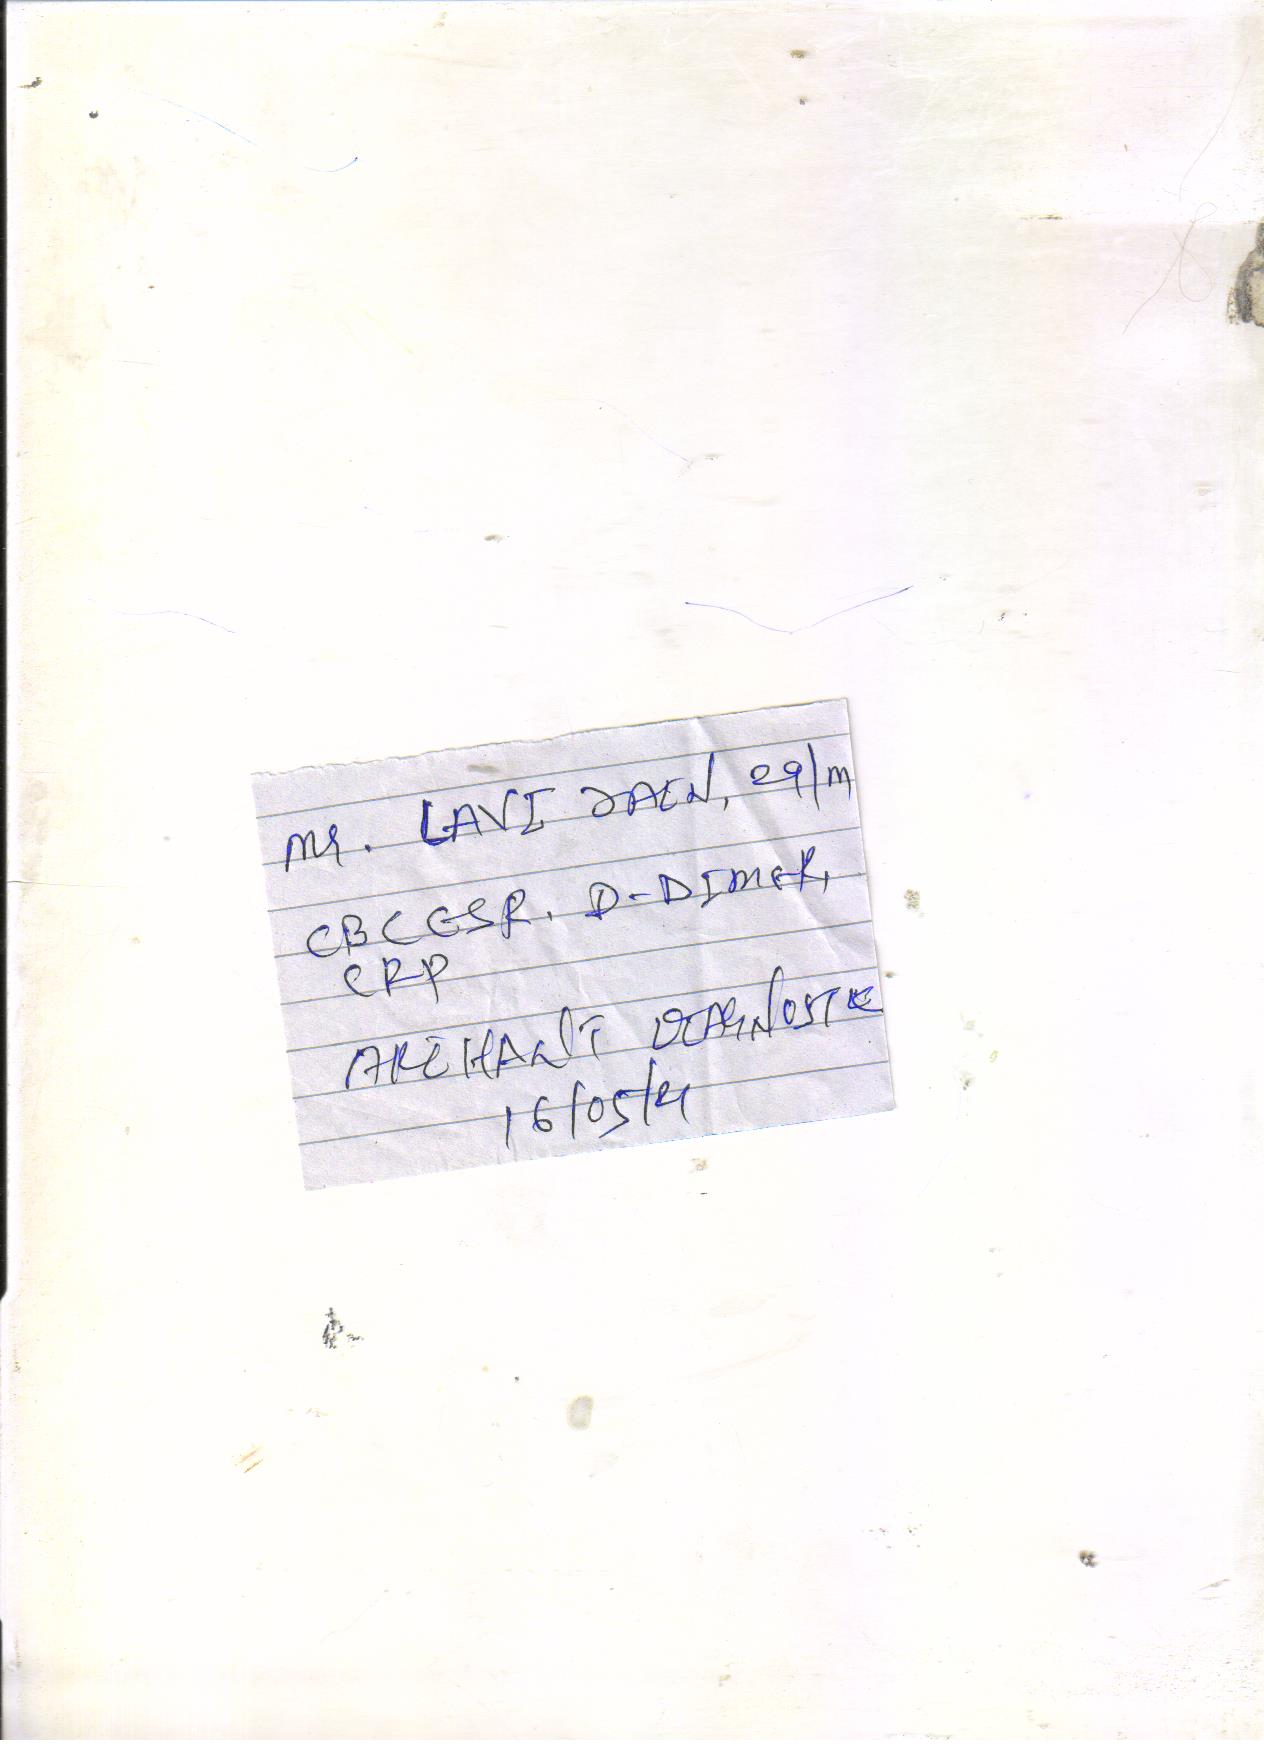 Mr. LAVI JAIN, 29/M
CBC ESR, D-DIMER,
CRP
ARIHANT DIAGNOSTIC
16/05/21